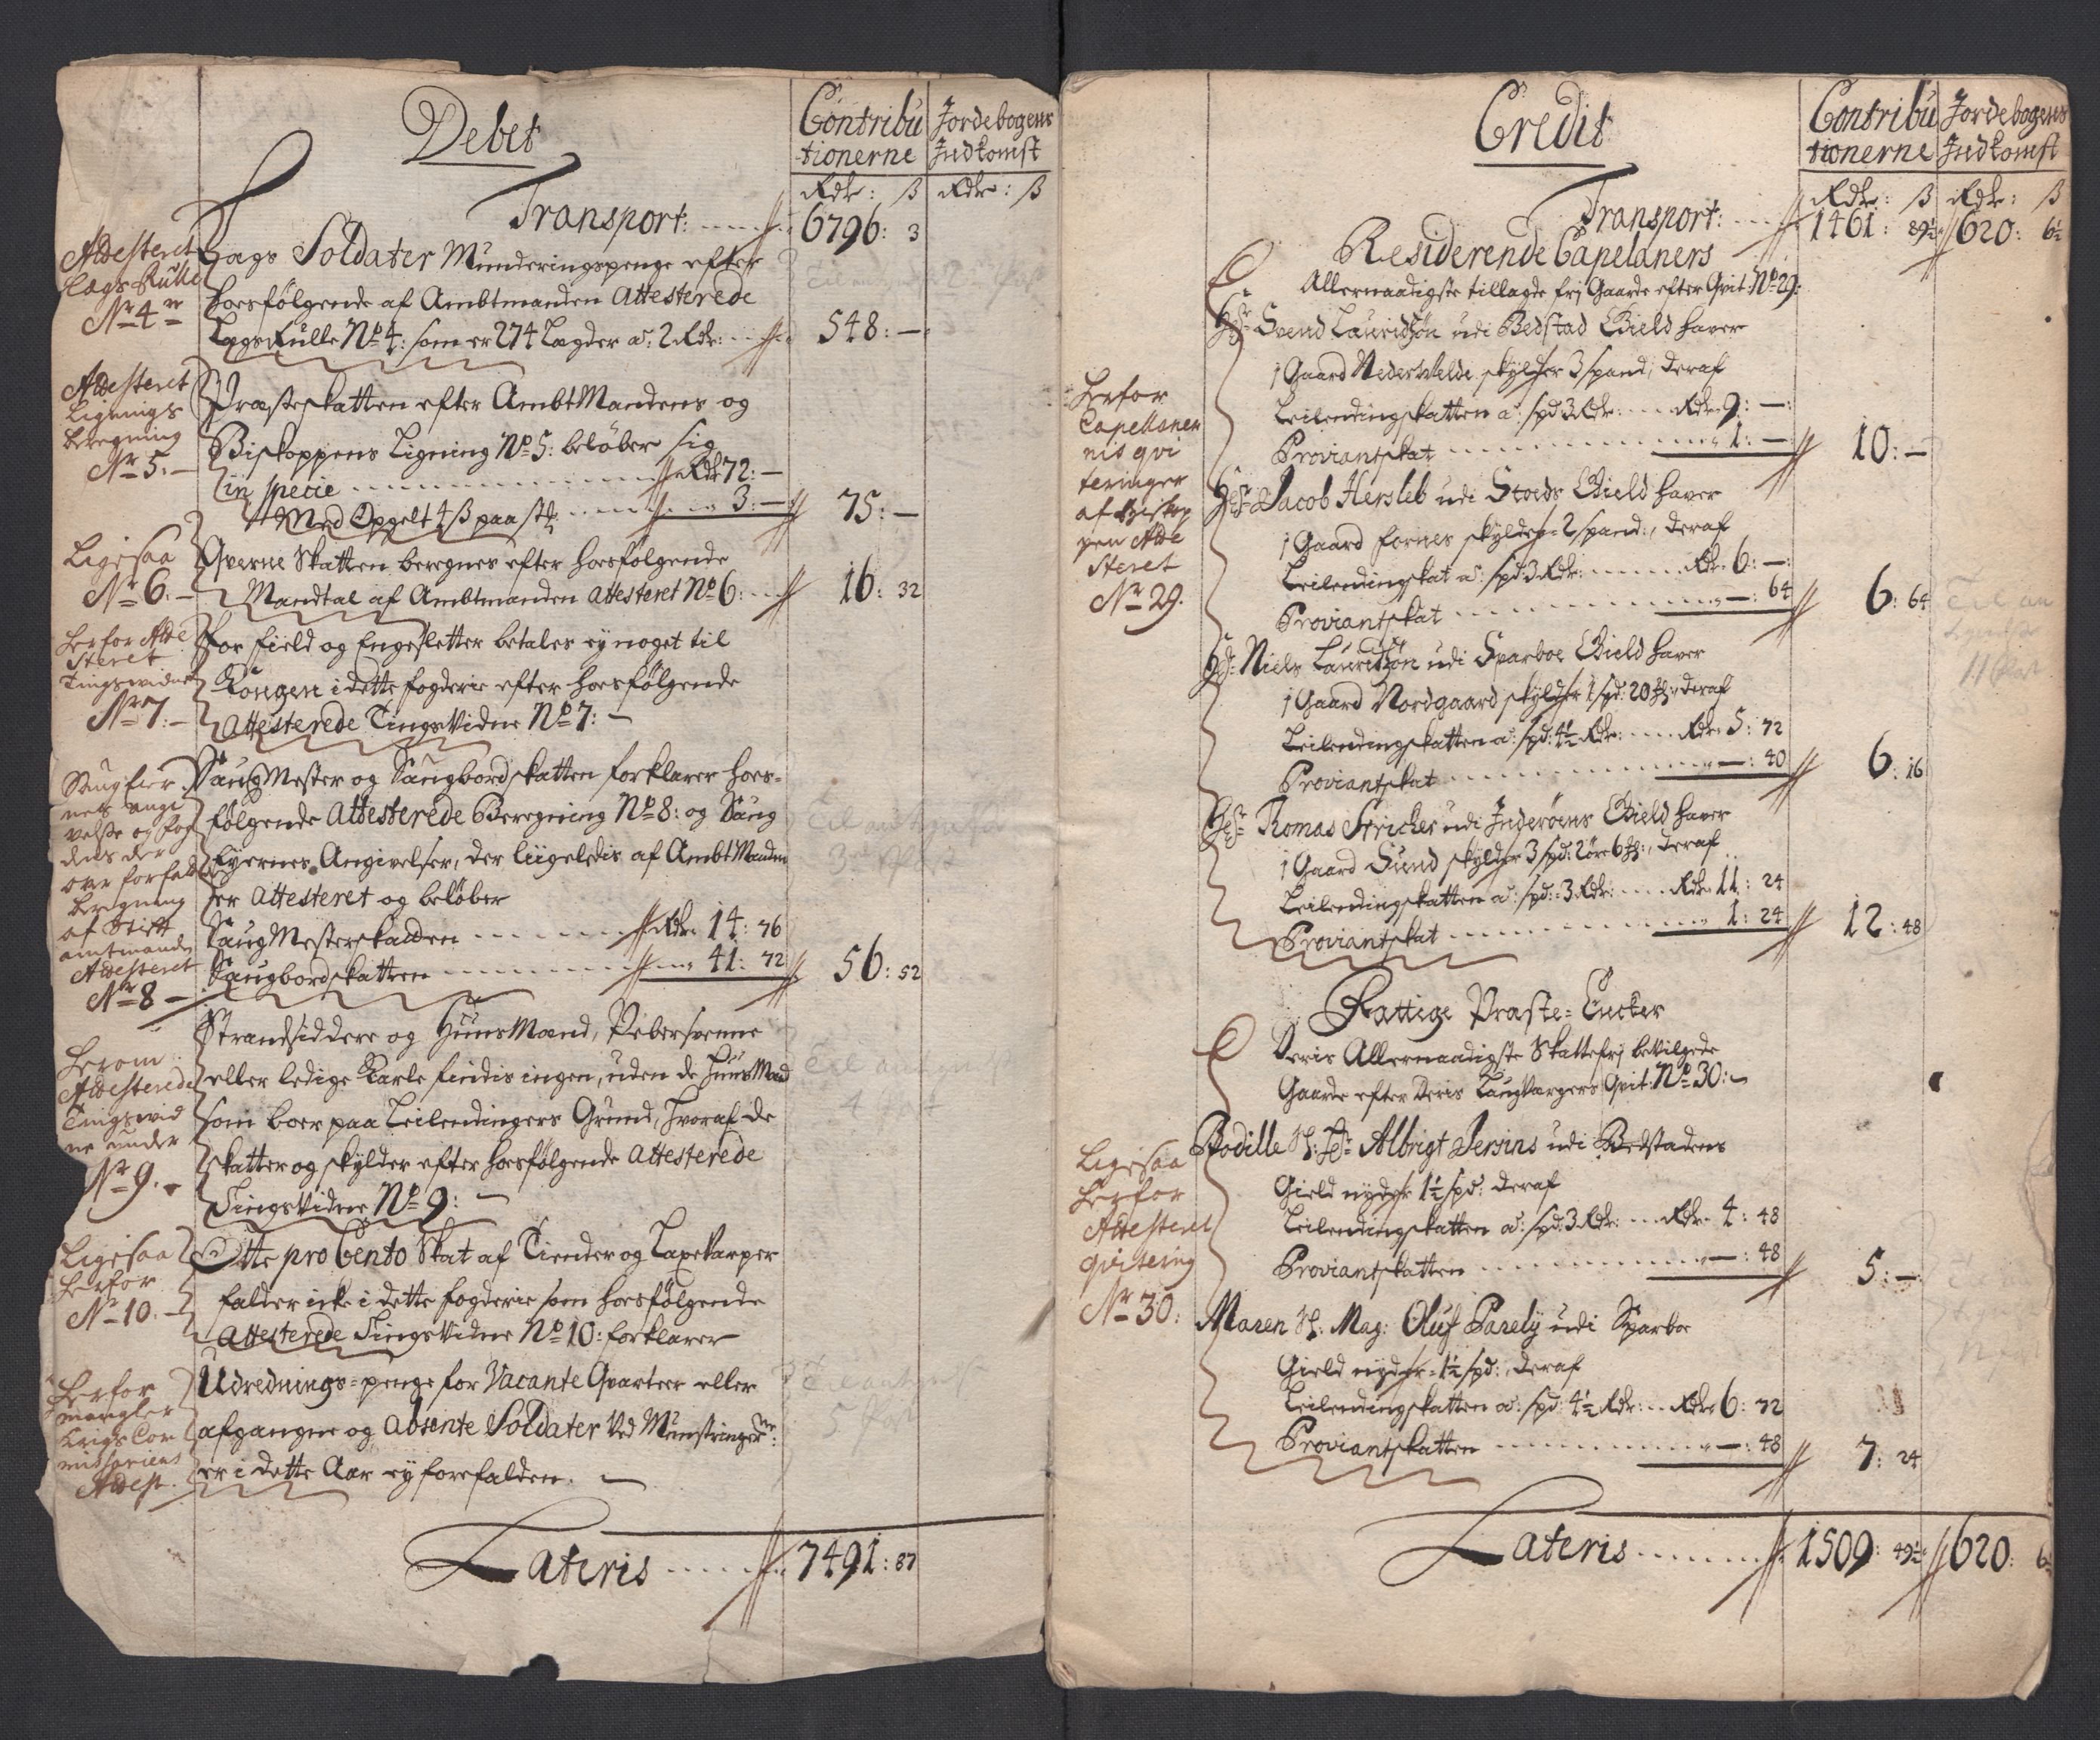 Debet
Contribu
tionerne
Jordebogens
Indkomst
Rdr: ß Rdr: ß
Transport: 6796: 3
Attesteret
Lægs Rulle
No 4
Lægs Soldater Munderingspenge efter
hosfølgende af Ambtmanden Attesterede
LægsRulle No 4: som er 274 Lægder a: 2 Rdr: 548: —
Attesteret
Lignings
beregning
No 5: —
Præsteskatten efter AmbtMandens og
Biskoppens Ligning No 5: beløber sig
in specie Rdr 72: —
Med Opgelt 4 ß paa stk 3: — 75: —
Ligesaa
No 6: —
Qverne Skatten beregnes efter hosfølgende
Mandtal af Ambtmanden attesteret No 6: 16: 32
herfor Atte
steret
Tingsvidne
No 7: —
For field og Engesletter betales ej noget til
Kongen i dette fogderie efter hosfølgende
attesterede TingsVidne No 7: —
Saugeier
nes angi
velse og fog
dens der
over forfatt
beregning
af Stift
amtmanden
Attesteret
No 8 —
SaugMester og Saugbordskatten forklarer hos-
følgende attesterede Beregning No 8: og Saug
Eyernes Angivelser, der liigeledis af AmbtManden
er attesteret og beløber
SaugMesterskatten Rdr 14: 76
Saugbordskatten 41: 72 56: 52
herom
Attesterede
Tingsvid
ne under
No 9.
Strandsiddere og HuusMænd, Pebersvenne
eller ledige Karle findis ingen, uden de HuusMænd
som boer paa Leilendingers Grund, hvoraf de
skatter og skylder efter hosfølgende attesterede
TingsVidne No 9: —
Ligesaa
herfor
No 10. —
Otte pro Cento Skat af Tiender og Laxevarper
falder icke i dette fogderie som hosfølgende
attesterede TingsVidne No 10: forklarer
herfor
mangler
krigs Com
missariens
Attest.
Udrednings-penge for Vacante Qvarteer eller
afgangne og absente Soldater Ved Mynstringer
er i dette Aar ej forefalden. —
Lateris 7491: 87
Credit
Contribu
tionerne
Jordebogens
Indkomst
Rdr: ß Rdr: ß
Transport: 1461: 89½ 620: 6½
Residerende Capelaners
Allernaadigste tillagde frj Gaarde efter Qvit: No 29:
herfor
Capellaner
nis qvi
teringer
af Biskop
pen Atte
steret
No 29.
Hr Svend Lauridsøn udi Bedstad Gield haver
1 Gaard NederVelde skylder 3 spand, deraf
Leilendingskatten a: spd 3 Rdr: Rdr 9: —
Proviantskat 1: — 10: —
Hr Jacob Hersleb udi Stoeds Gield haver
1 Gaard Fornes skylder 2 spand:, deraf
Leilendingskat a: spd 3 Rdr: Rdr 6: —
Proviantskat —: 64 6: 64
Hr Niels Lauridsøn udi Sparboe Gield haver
1 Gaard Nordgaard skylder 1 spd: 20 deraf
Leilendingskatten a: spd: 4½ Rdr: Rdr 5: 72
Proviantskat —: 40 6: 16
Hr Tomas Stricker udi Inderøens Gield haver
1 Gaard Sund skylder 3 spd: 2 øre 6 , deraf
Leilendingskatten a: spd: 3 Rdr: Rdr 11: 24
Proviantskat 1: 24 12: 48
Fattige Præste-Encker
Deris Allernaadigste Skattefrj beVilgede
Gaarde efter Deris LaugVærgers Qvit: No 30: —
Ligesaa
herfor
Attesteret
qvitering
No 30:
Bodille Sl: Hr Albrigt Jersins udi Bedstadens
Gield nyder 1½ spd: deraf
Leilendingskatten a: spd: 3 Rdr: Rdr 4: 48
Proviantskatten —: 48 5: —
Maren Sl: Mag: Oluf Parely udi Sparboe
Gield nyder 1½ spd:, deraf
Leilendingskatten a: spd: 4½ Rdr: Rdr 6: 72
Proviantskatten —: 48 7: 24
Lateris 1509: 49½ 620: 6